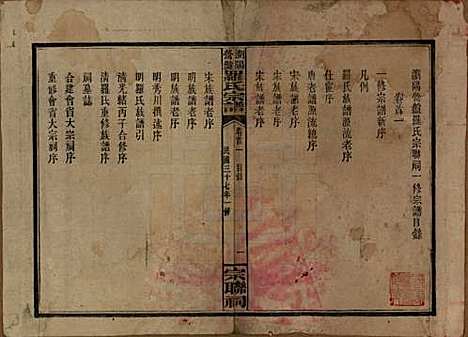 瀏陽營盤羅氏宗聯祠一修宗譜目錄
卷首一
一修宗譜新序
凡例
仕宦序
羅氏族譜源流總序
唐老譜源流序
宋族譜老序
羅氏宗譜
卷首一 目錄
一
民國三十七年一修
宗聯祠
宋族譜老序
明族譜老序
明秀川撰述序
明羅氏族譜序
清光緒丙子合修序
清羅氏重修族譜序
祠墓誌
合建會省大宗祠序
重修會省大宗祠序